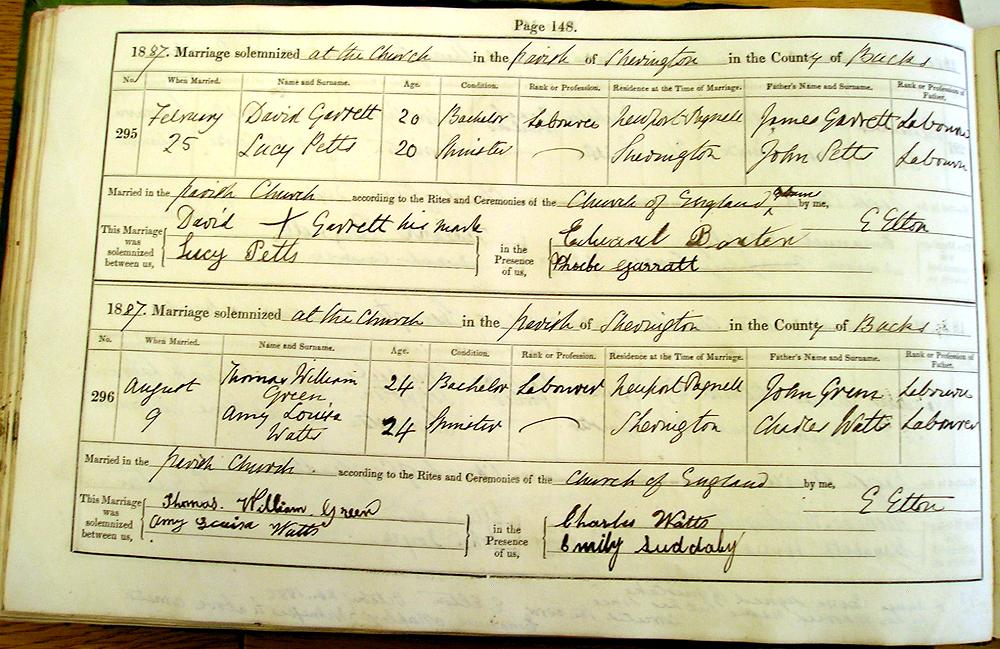 Page 148.
1887. Marriage solemnized at the Church in the Parish of Sherington in the County of Bucks
No. When Married. Name and Surname. Age. Condition. Rank or Profession. Residence at the Time of Marriage. Father's Name and Surname. Rank or Profession of Father.
295 February David Garrett 20 Bachelor Labourer Newport Pagnell James Garrett Labourer
25 Lucy Petts 20 Spinster — Sherington John Petts Labourer
Married in the Parish Church according to the Rites and Ceremonies of the Church of England by me,
This Marriage was solemnized between us, David X Garrett his mark in the Presence of us, Edward E Elton
Lucy Petts Phoebe Garratt
1887. Marriage solemnized at the Church in the Parish of Sherington in the County of Bucks
No. When Married. Name and Surname. Age. Condition. Rank or Profession. Residence at the Time of Marriage. Father's Name and Surname. Rank or Profession of Father.
296 August Thomas William Green 24 Bachelor Labourer Newport Pagnell John Green Labourer
9 Amy Louisa Watts 24 Spinster — Sherington Charles Watts Labourer
Married in the Parish Church according to the Rites and Ceremonies of the Church of England by me,
This Marriage was solemnized between us, Thomas William Green in the Presence of us, Charles Watts E Elton
Amy Louisa Watts Emily Suddaby